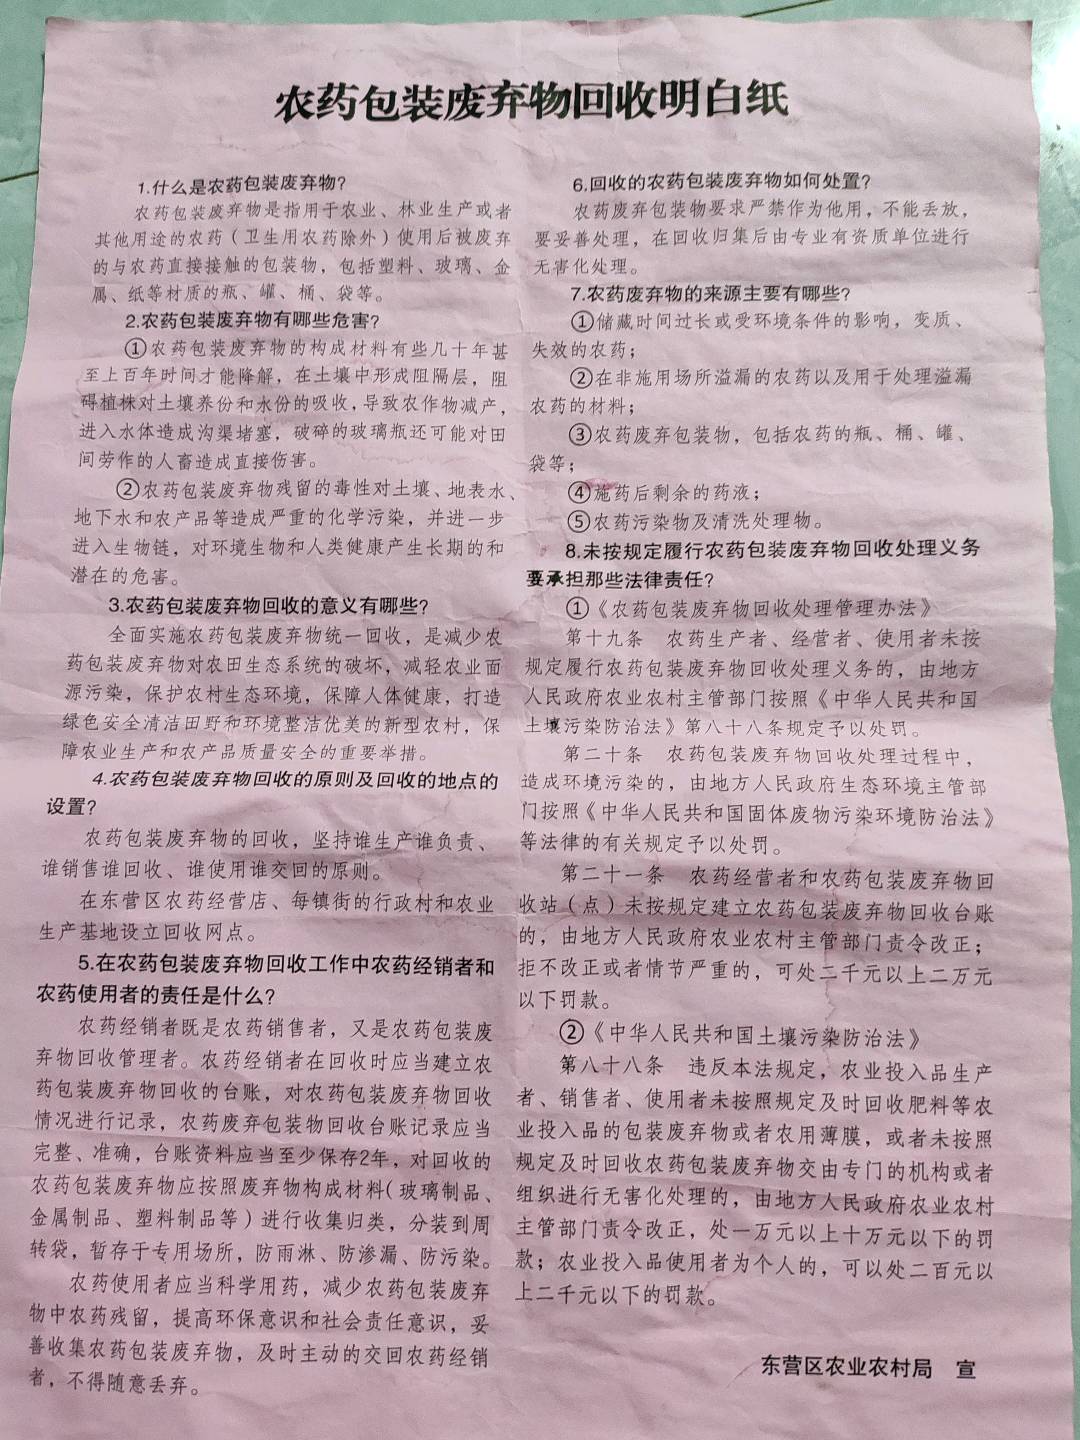 农药包装废弃物回收明白纸
1.什么是农药包装废弃物?
农药包装废弃物是指用于农业、林业生产或者
其他用途的农药（卫生用农药除外）使用后被废弃
的与农药直接接触的包装物，包括塑料、玻璃、金
属、纸等材质的瓶、罐、桶、袋等。
2.农药包装废弃物有哪些危害?
①农药包装废弃物的构成材料有些几十年甚
至上百年时间才能降解，在土壤中形成阻隔层，阻
碍植株对土壤养份和水份的吸收,导致农作物减产，
进入水体造成沟渠堵塞，破碎的玻璃瓶还可能对田
间劳作的人畜造成直接伤害。
②农药包装废弃物残留的毒性对土壤、地表水、
地下水和农产品等造成严重的化学污染，并进一步
进入生物链，对环境生物和人类健康产生长期的和
潜在的危害。
3.农药包装废弃物回收的意义有哪些?
全面实施农药包装废弃物统一回收，是减少农
药包装废弃物对农田生态系统的破坏，减轻农业面
源污染，保护农村生态环境，保障人体健康，打造
绿色安全清洁田野和环境整洁优美的新型农村，保
障农业生产和农产品质量安全的重要举措。
4.农药包装废弃物回收的原则及回收的地点的
设置?
农药包装废弃物的回收，坚持谁生产谁负责、
谁销售谁回收、谁使用谁交回的原则。
在东营区农药经营店、每镇街的行政村和农业
生产基地设立回收网点。
5.在农药包装废弃物回收工作中农药经销者和
农药使用者的责任是什么?
农药经销者既是农药销售者，又是农药包装废
弃物回收管理者。农药经销者在回收时应当建立农
药包装废弃物回收的台账，对农药包装废弃物回收
情况进行记录，农药废弃包装物回收台账记录应当
完整、准确，台账资料应当至少保存2年，对回收的
农药包装废弃物应按照废弃物构成材料(玻璃制品、
金属制品、塑料制品等）进行收集归类，分装到周
转袋，暂存于专用场所，防雨淋、防渗漏、防污染。
农药使用者应当科学用药，减少农药包装废弃
物中农药残留，提高环保意识和社会责任意识，妥
善收集农药包装废弃物，及时主动的交回农药经销
者，不得随意丢弃。
6.回收的农药包装废弃物如何处置?
农药废弃包装物要求严禁作为他用，不能丢放，
要妥善处理，在回收归集后由专业有资质单位进行
无害化处理。
7.农药废弃物的来源主要有哪些?
①储藏时间过长或受环境条件的影响，变质、
失效的农药；
②在非施用场所溢漏的农药以及用于处理溢漏
农药的材料；
③农药废弃包装物，包括农药的瓶、桶、罐、
袋等；
④施药后剩余的药液；
⑤农药污染物及清洗处理物。
8.未按规定履行农药包装废弃物回收处理义务
要承担那些法律责任?
①《农药包装废弃物回收处理管理办法》
第十九条 农药生产者、经营者、使用者未按
规定履行农药包装废弃物回收处理义务的，由地方
人民政府农业农村主管部门按照《中华人民共和国
土壤污染防治法》第八十八条规定予以处罚。
第二十条 农药包装废弃物回收处理过程中，
造成环境污染的，由地方人民政府生态环境主管部
门按照《中华人民共和国固体废物污染环境防治法》
等法律的有关规定予以处罚。
第二十一条 农药经营者和农药包装废弃物回
收站（点）未按规定建立农药包装废弃物回收台账
的，由地方人民政府农业农村主管部门责令改正；
拒不改正或者情节严重的，可处二千元以上二万元
以下罚款。
②《中华人民共和国土壤污染防治法》
第八十八条 违反本法规定，农业投入品生产
者、销售者、使用者未按照规定及时回收肥料等农
业投入品的包装废弃物或者农用薄膜，或者未按照
规定及时回收农药包装废弃物交由专门的机构或者
组织进行无害化处理的，由地方人民政府农业农村
主管部门责令改正，处一万元以上十万元以下的罚
款；农业投入品使用者为个人的，可以处二百元以
上二千元以下的罚款。
东营区农业农村局 宣